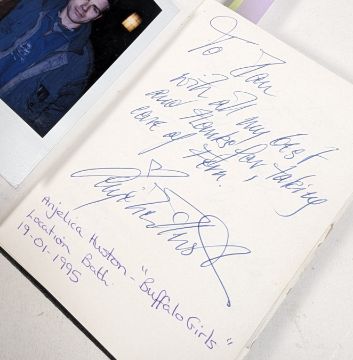 To Dan
with all my best
and thanks for taking
care of them.
Anjelica Huston
Anjelica Huston - "Buffalo Girls"
Location Bath.
19-01-1995